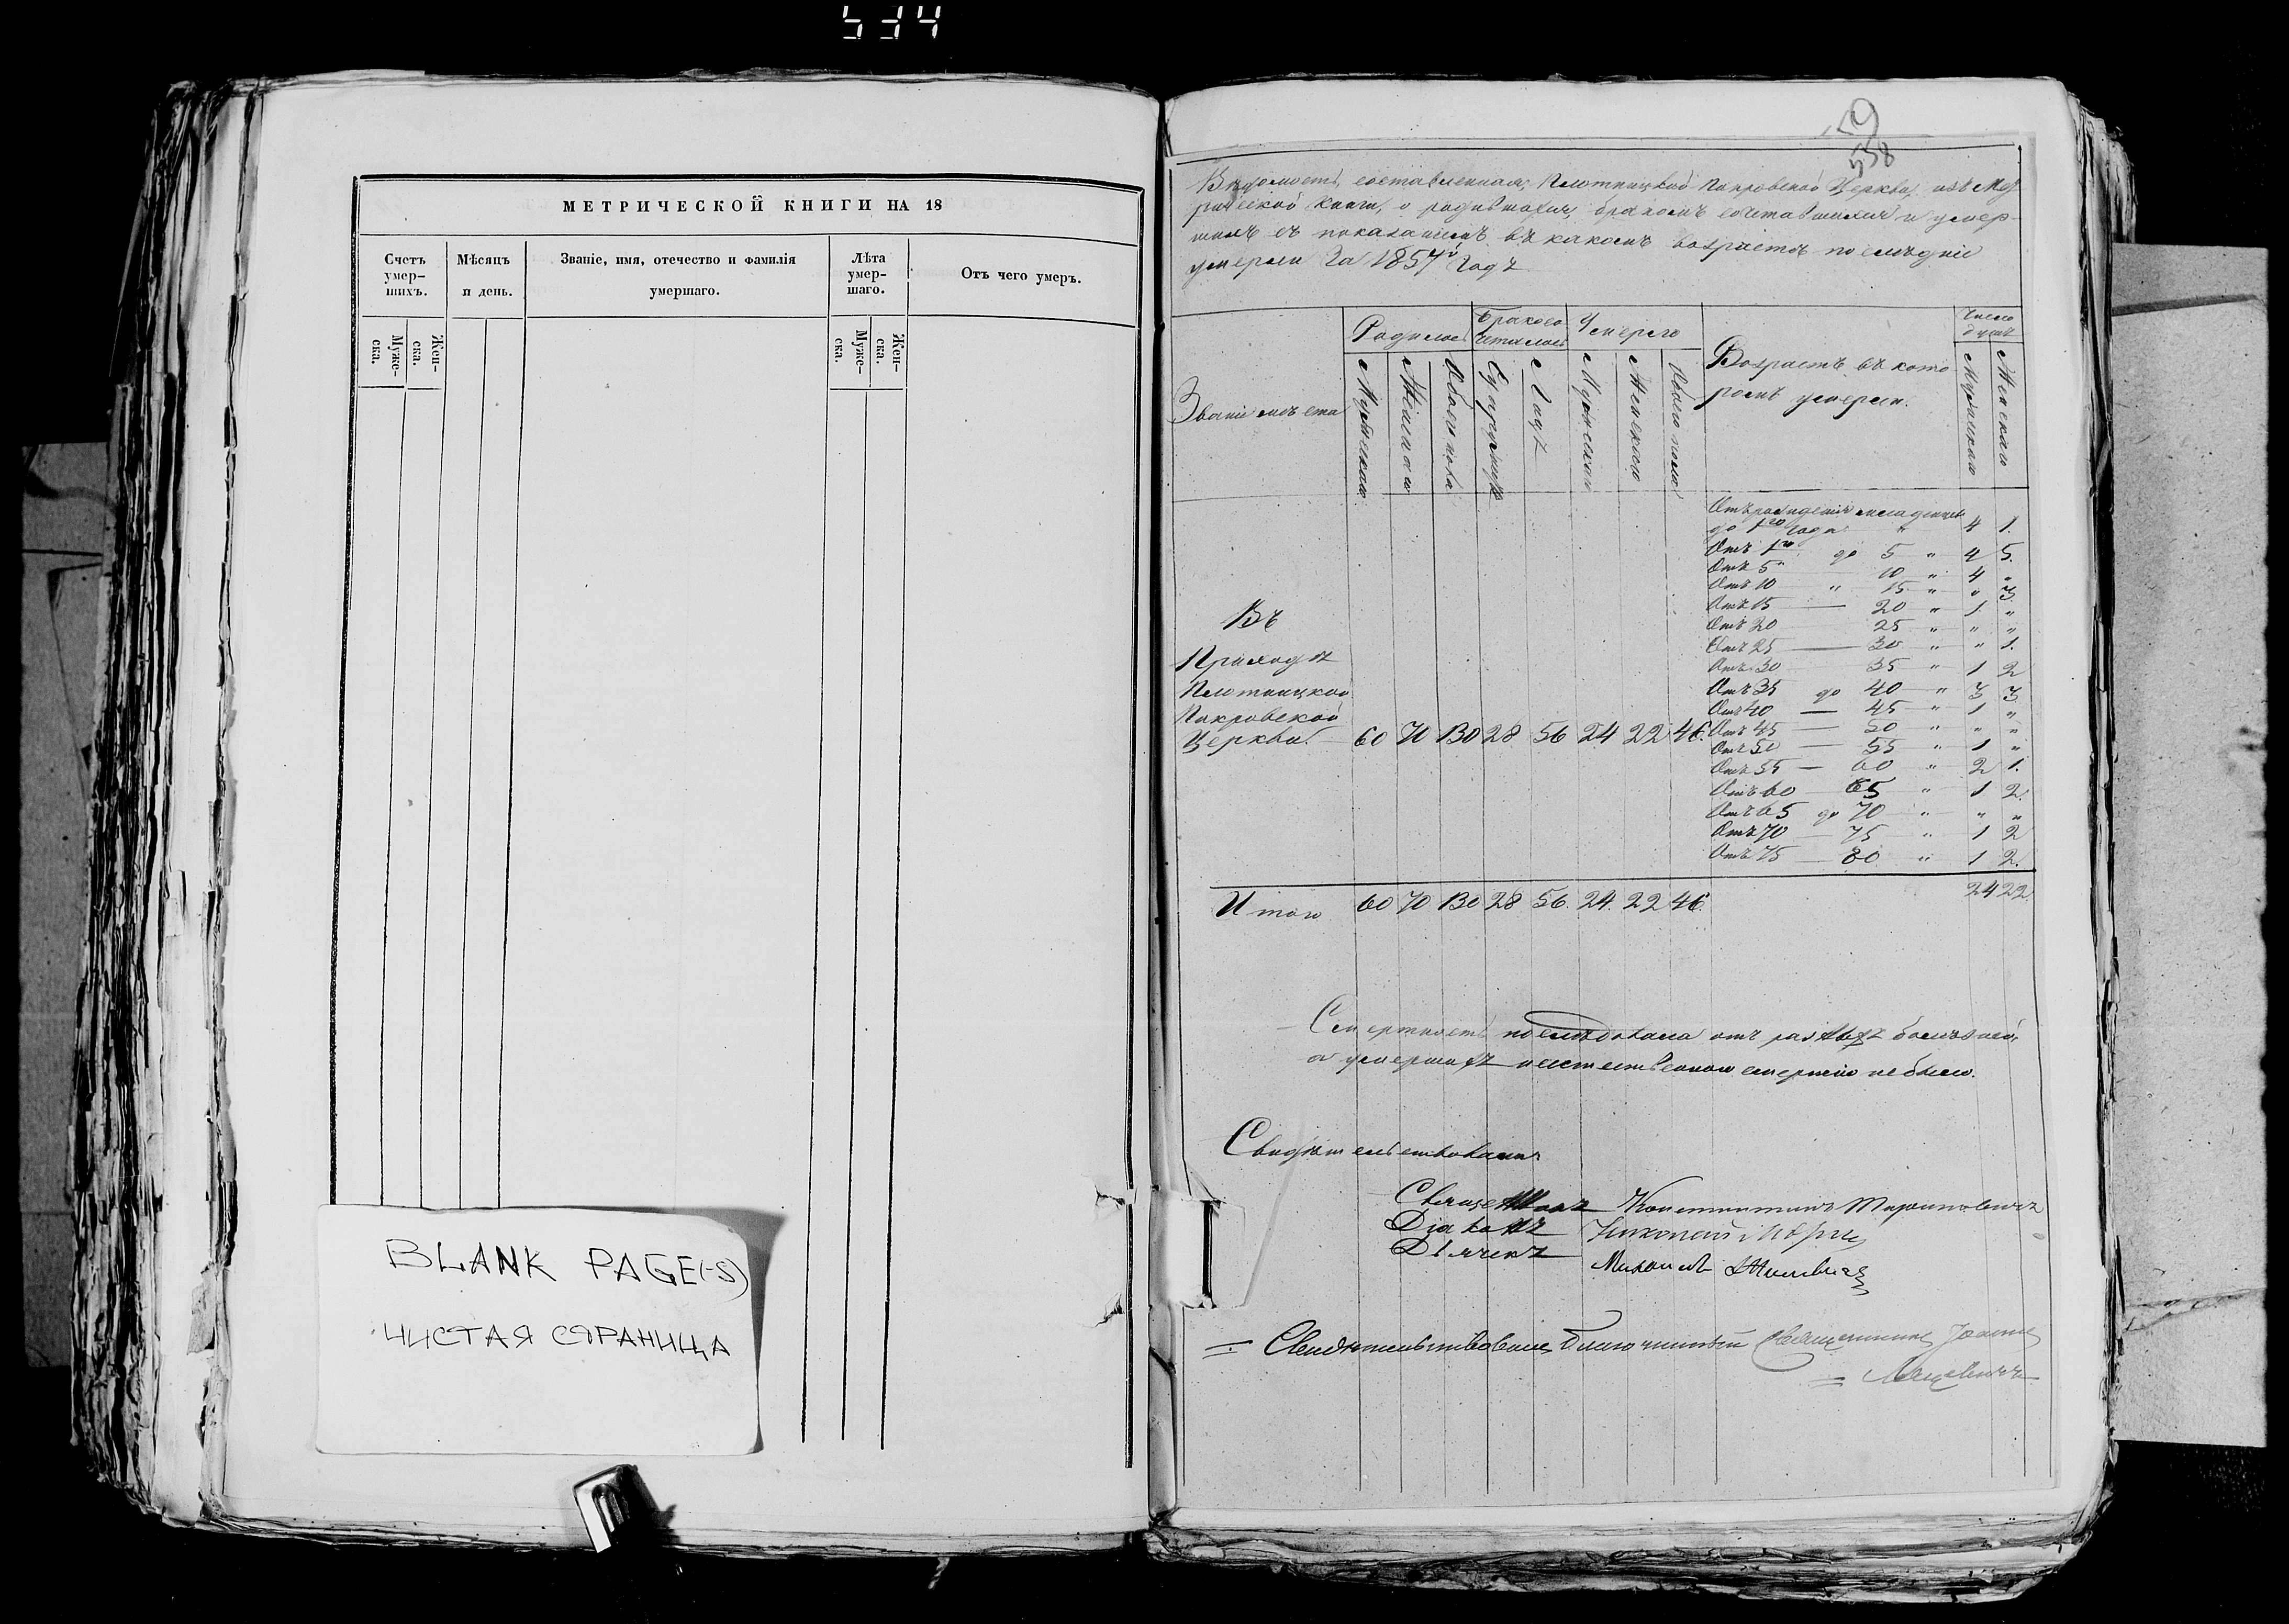 534
МЕТРИЧЕСКОЙ КНИГИ НА 18
Счетъ умер-шихъ.
Мѣсяцъ и день.
Званіе, имя, отечество и фамилія умершаго.
Лѣта умер-шаго.
Отъ чего умеръ.
Муже-ска.
Жен-ска.
Муже-ска.
Жен-ска.
BLANK PAGE(-S)
ЧИСТАЯ СТРАНИЦА
558
Вѣдомость, составленная, Плотницкой Покровской Церкви, изъ Мет-
рической книги, о родившихся, бракомъ сочетавшихся и умер-
шихъ съ показаніемъ въ какомъ возрастѣ послѣдніе
умерли За 1857й Годъ
Званіе мѣста
Родилось
Бракосо четалось
Умерло
Возрастъ въ кото
ромъ умерли.
Число душъ
Мужескаго
Женскаго
Обоего пола
Супружествъ
Лицъ
Мужескаго
Женскаго
Обоего пола
Мужескаго
Женскаго
Отъ рожденія младенцевъ
до 1го года " 4 1.
Отъ 1го до 5 " 4 5.
Отъ 5 10 " 4 "
Отъ 10 " 15 " " 3
Отъ 15 — 20 " 1 "
Отъ 20 25 " " "
Отъ 25 — 30 " " 1.
Отъ 30 35 " 1 2
Отъ 35 до 40 " 3 3
Отъ 40 — 45 " 1 "
Отъ 45 — 50 " " "
Отъ 50 — 55 " 1 "
Отъ 55 — 60 " 2 1.
Отъ 60 — 65 " 1 2.
Отъ 65 до 70 " " "
Отъ 70 — 75 " 1 2
Отъ 75 — 80 " 1 2.
Въ
Приходѣ
Плотницкой
Покровской
Церкви. 60 70 130 28 56 24 22 46.
Итого 60 70 130 28 56. 24. 22 46. 24 22
Смертность послѣдовала отъ разныхъ болѣзней,
а умершихъ неестественною смертію не было.
Свидѣтельствовали
Священникъ Константинъ
Діаконъ Николай
Дьячекъ Михаилъ
= Свидѣтельствовалъ Благочинный Священникъ Іоаннъ